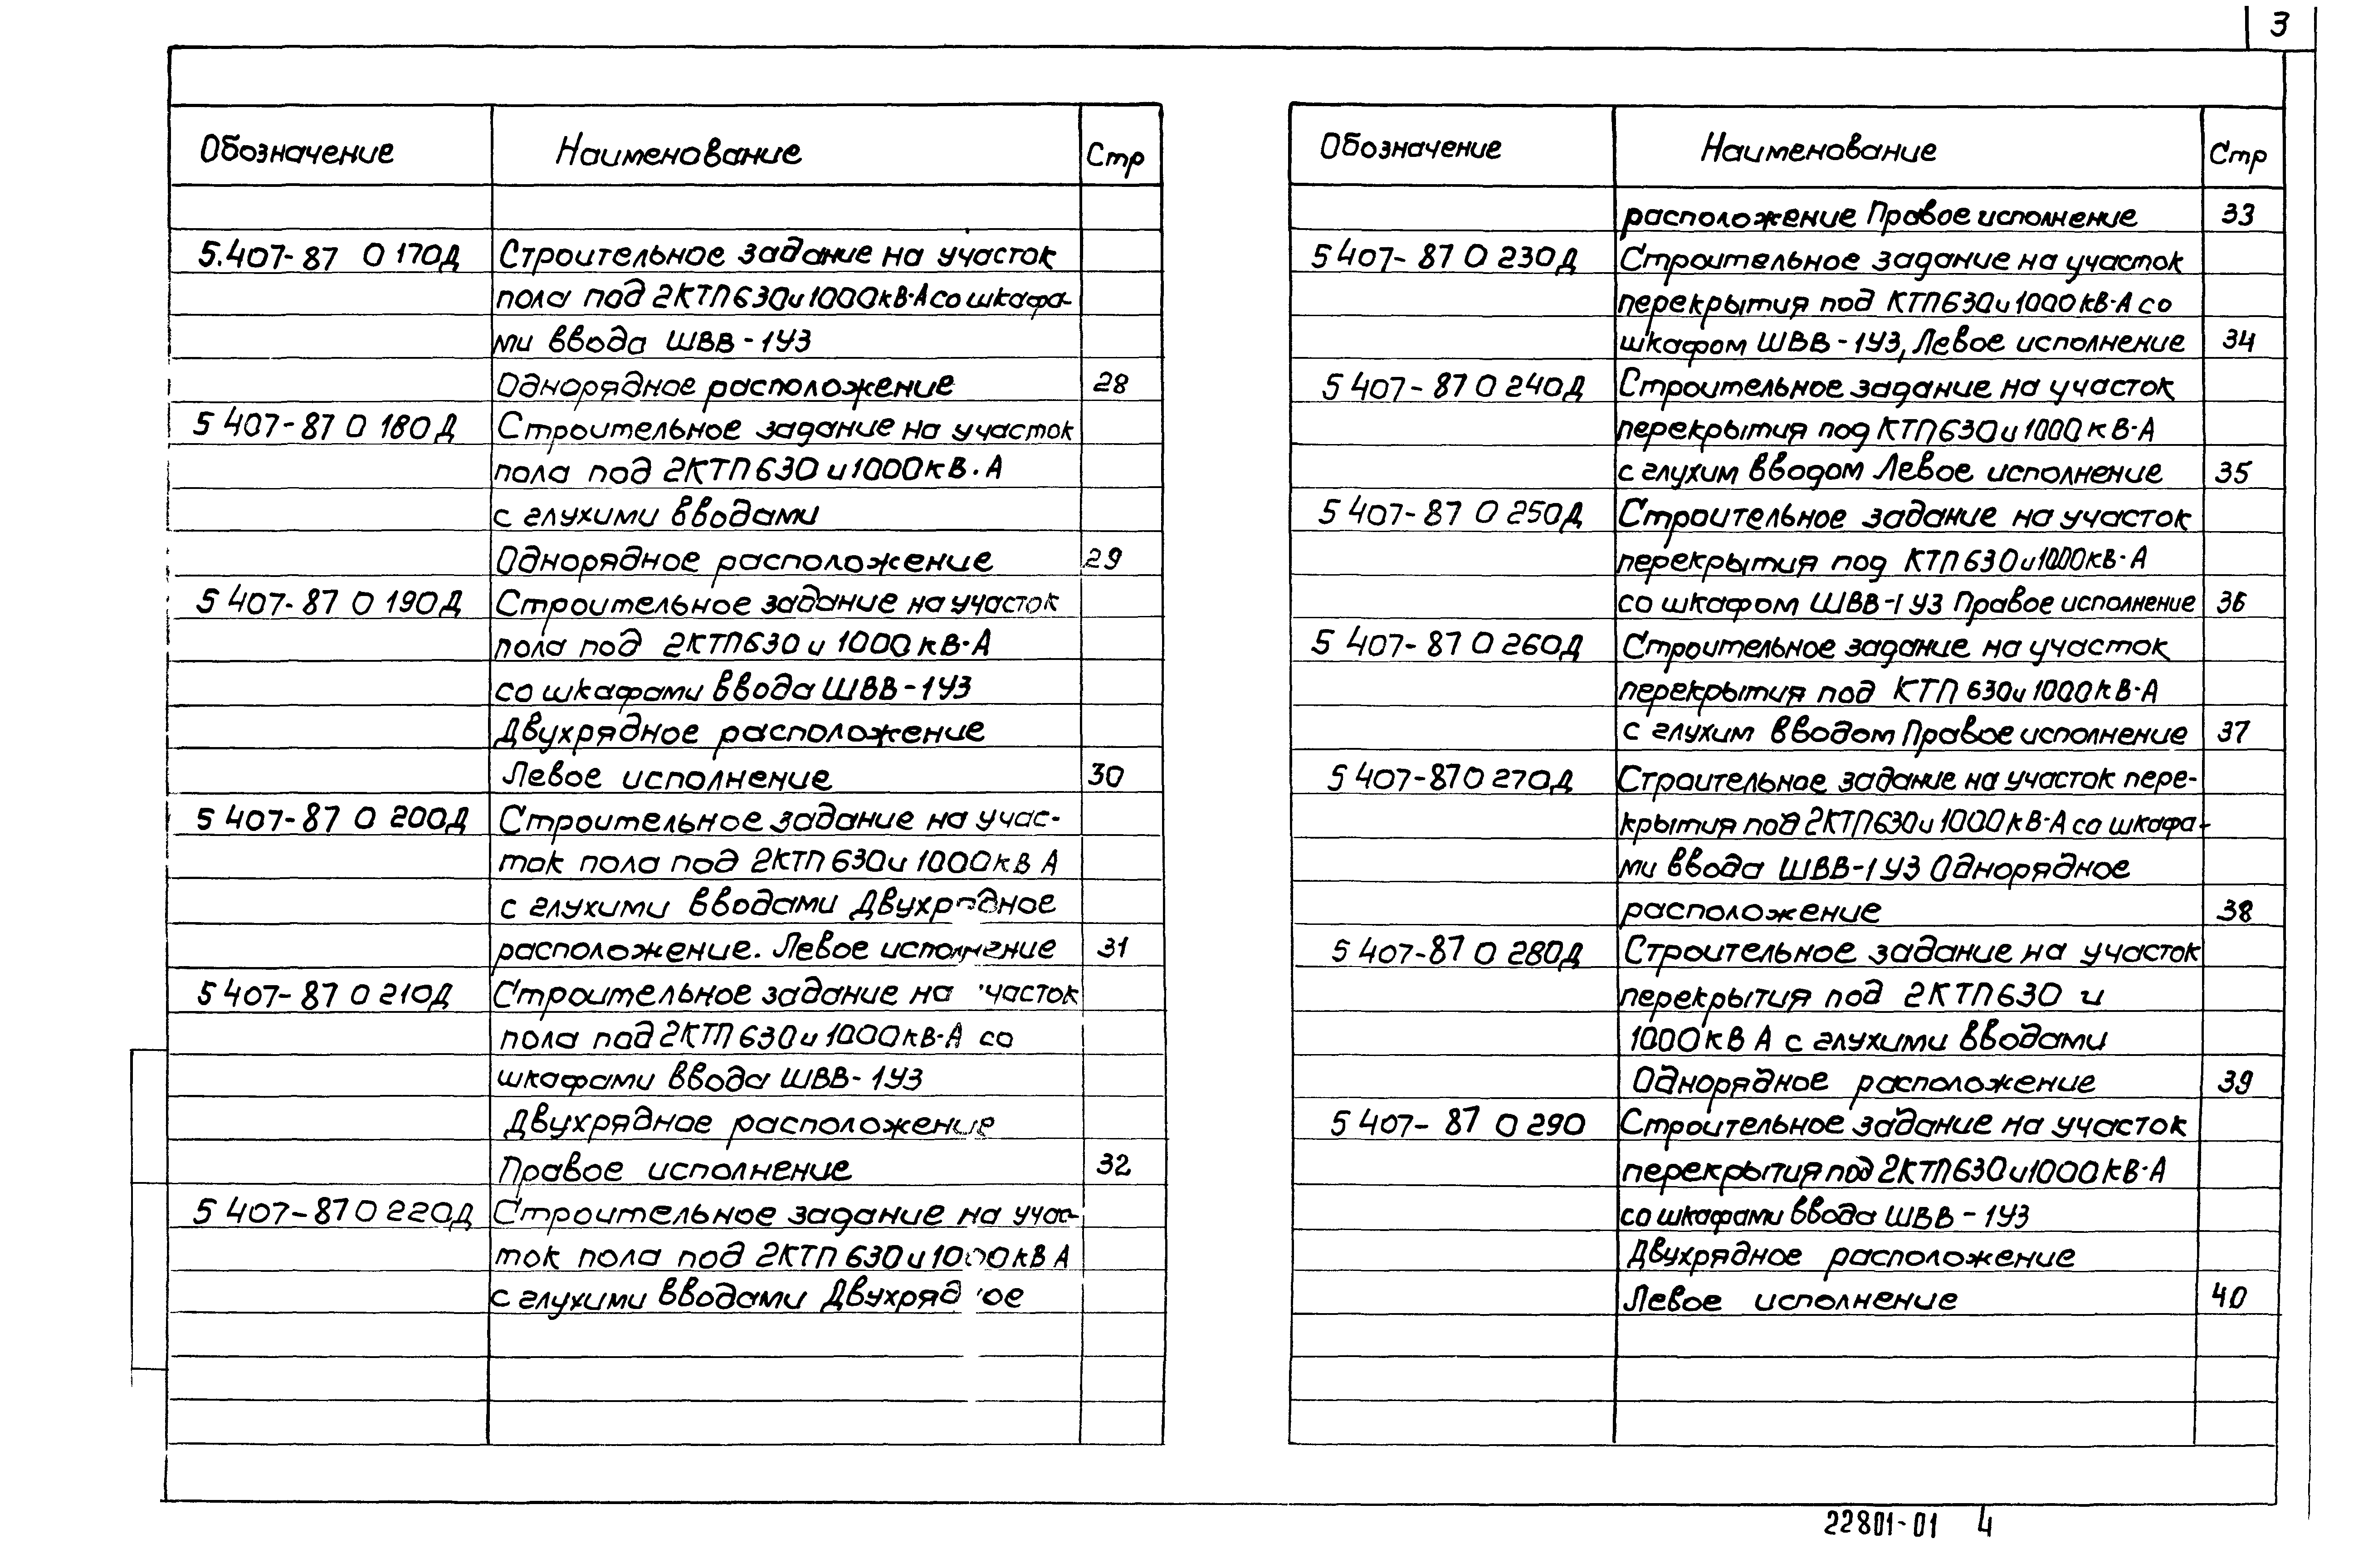 3
Обозначение Наименование Стр
5.407-87 0 170Д Строительное задание на участок
пола под 2КТП630и1000кВ·А со шкафа-
ми ввода ШВВ-1У3
Однорядное расположение 28
5 407-87 0 180Д Строительное задание на участок
пола под 2КТП630 и 1000кВ.А
с глухими вводами
Однорядное расположение 29
5 407-87 0 190Д Строительное задание на участок
пола под 2КТП630 и 1000кВ·А
со шкафами ввода ШВВ-1У3
Двухрядное расположение
Левое исполнение 30
5 407-87 0 200Д Строительное задание на учас-
ток пола под 2КТП630и 1000кВ А
с глухими вводами Двухрядное
расположение. Левое исполнение 31
5 407-87 0 210Д Строительное задание на участок
пола под 2КТП630и 1000кВ·А со
шкафами ввода ШВВ-1У3
Двухрядное расположение
Правое исполнение 32
5 407-87 0 220Д Строительное задание на учас-
ток пола под 2КТП 630и1000кВ А
с глухими вводами Двухрядное
Обозначение Наименование Стр
расположение Правое исполнение 33
5 407-87 0 230Д Строительное задание на участок
перекрытия под КТП630и1000кВ·А со
шкафом ШВВ-1У3, Левое исполнение 34
5 407-87 0 240Д Строительное задание на участок
перекрытия под КТП630и1000кВ·А
с глухим вводом Левое исполнение 35
5 407-87 0 250Д Строительное задание на участок
перекрытия под КТП630и1000кВ·А
со шкафом ШВВ-1У3 Правое исполнение 36
5 407-87 0 260Д Строительное задание на участок
перекрытия под КТП 630и1000кВ·А
с глухим вводом Правое исполнение 37
5 407-87 0 270Д Строительное задание на участок пере-
крытия под 2КТП630и1000кВ·А со шкафа-
ми ввода ШВВ-1У3 Однорядное
расположение 38
5 407-87 0 280Д Строительное задание на участок
перекрытия под 2КТП630 и
1000кВ А с глухими вводами
Однорядное расположение 39
5 407-87 0 290 Строительное задание на участок
перекрытия под 2КТП630и1000кВ·А
со шкафами ввода ШВВ-1У3
Двухрядное расположение
Левое исполнение 40
22801-01 4